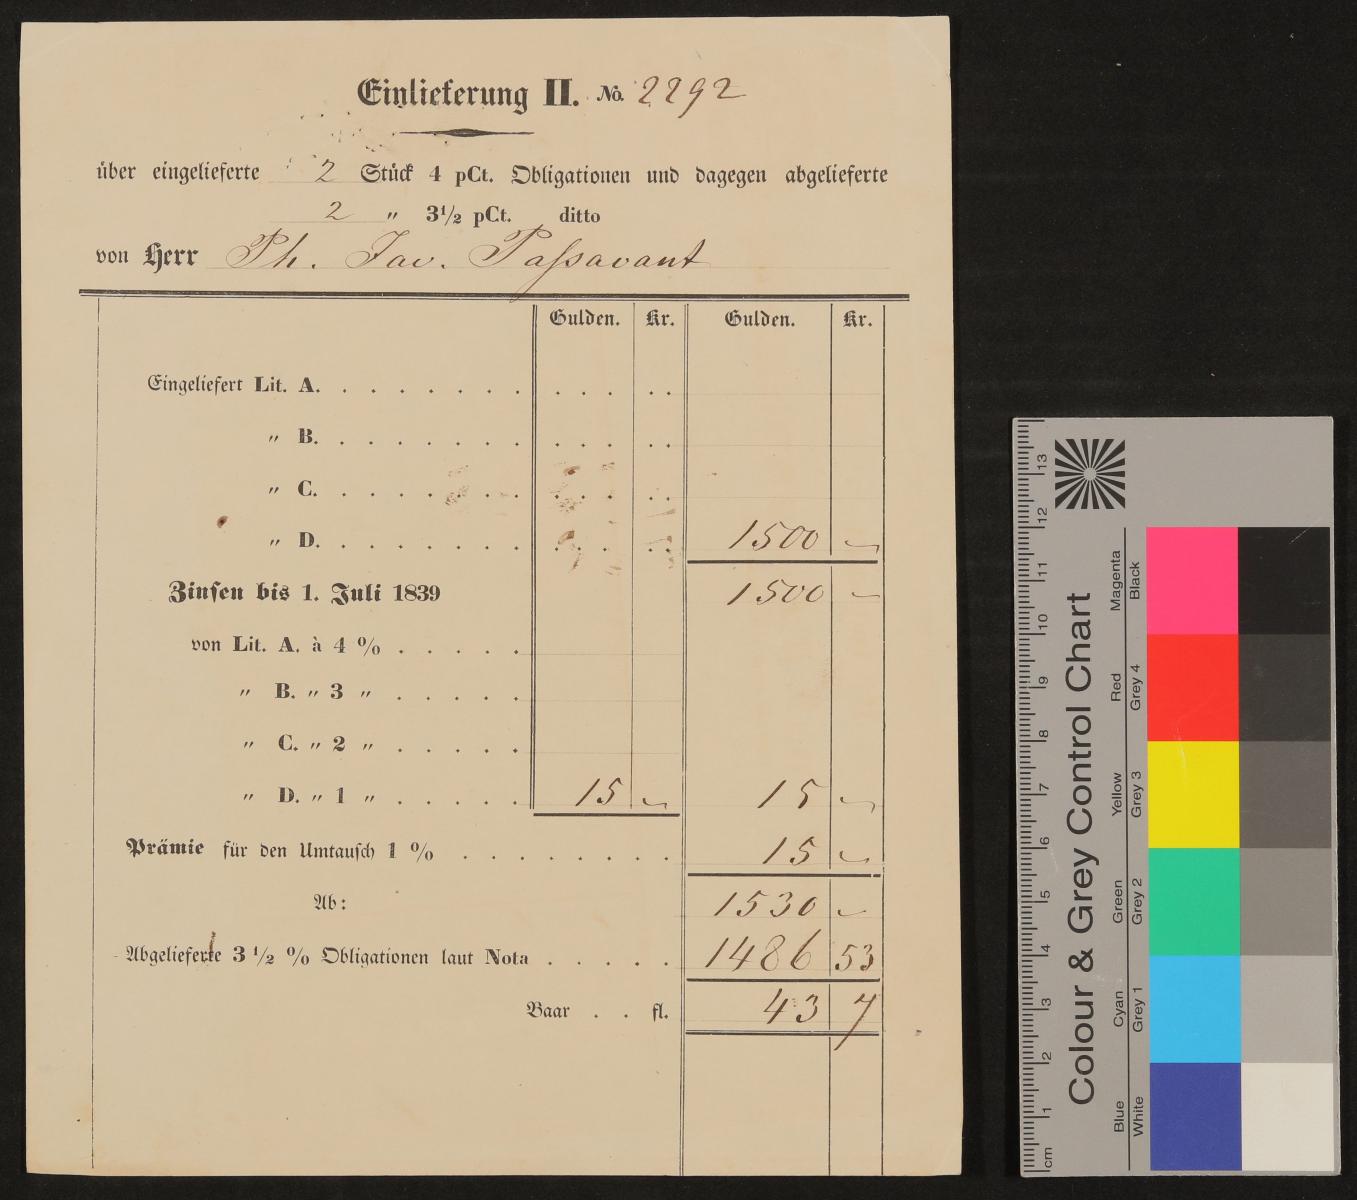 Einlieferung II. No. 2292
über eingelieferte 2 Stück 4 pCt. Obligationen und dagegen abgelieferte
2 " 3 1/2 pCt. ditto
von Herr Ph. Jac. Paſsavant
Gulden. Kr. Gulden. Kr.
Eingeliefert Lit. A. . . . . . . . . . . . . .
" B. . . . . . . . . . . . . .
" C. . . . . . . . . . . . . .
" D. . . . . . . . . . . . . . 1500 —
Zinsen bis 1. Juli 1839 1500 —
von Lit. A. à 4 % . . . . .
" B. " 3 " . . . . .
" C. " 2 " . . . . .
" D. " 1 " . . . . . 15 — 15 —
Prämie für den Umtausch 1 % . . . . . . . . 15 —
Ab: 1530 —
Abgelieferte 3 1/2 % Obligationen laut Nota . . . . . 1486 53
Baar . . fl. 43 7
Colour & Grey Control Chart
Magenta Black
Red Grey 4
Yellow Grey 3
Green Grey 2
Cyan Grey 1
Blue White
13
12
11
10
9
8
7
6
5
4
3
2
1
cm